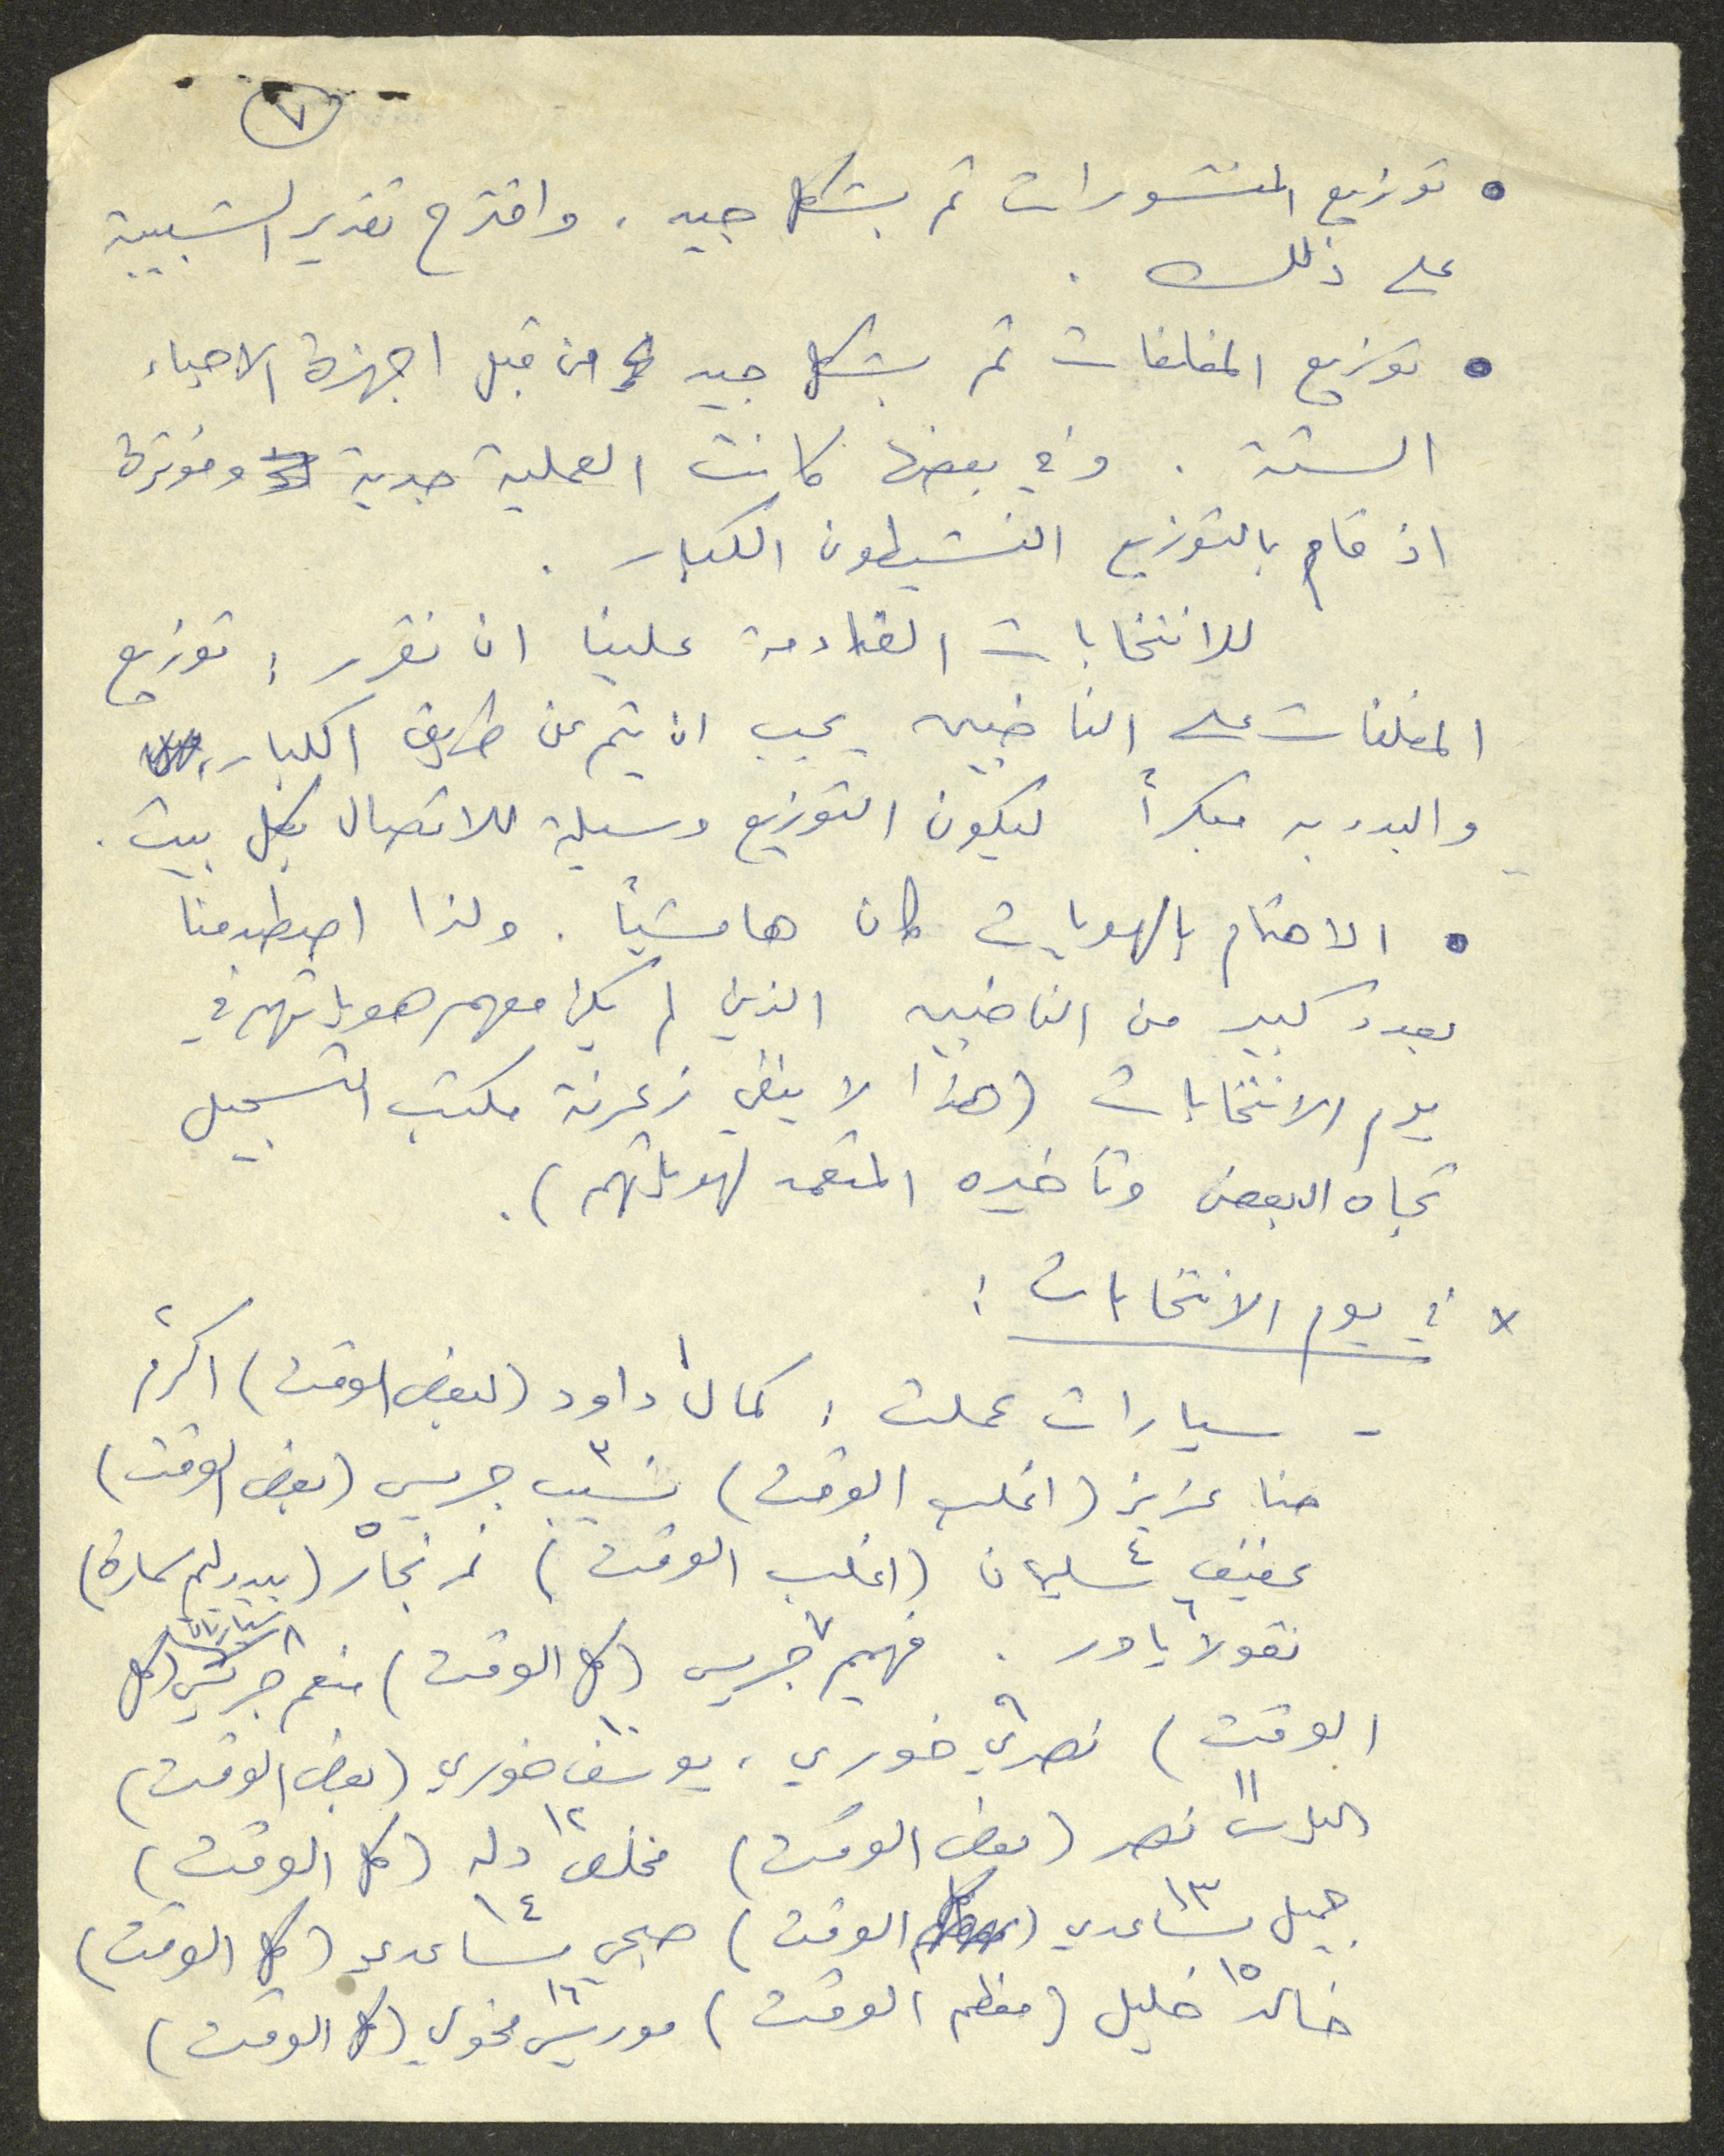 ٧
• توزيع المنشورات تم بشكل جيد، واقترح تقدير الشبيبة
على ذلك.
• توزيع المغلفات تم بشكل جيد من قبل اجهزة الاحياء
الستة. وفي بعضها كانت العملية جدية ومؤثرة
اذ قام بالتوزيع النشيطون الكبار.
للانتخابات القادمة علينا ان نقرر: توزيع
المغلفات على الناخبين يجب ان يتم عن طريق الكبار،
والبدء به مبكراً ليكون التوزيع وسيلة للاتصال بكل بيت.
• الاهتمام بالهويات كان هامشياً. ولذا اصطدمنا
بعدد كبير من الناخبين الذين لم يكن معهم هوياتهم في
يوم الانتخابات (هذا لا ينفي زعرنة مكتب التسجيل
تجاه البعض وتأخيره المتعمد لهوياتهم).
x في يوم الانتخابات:
- سيارات عملت: كمال ١ داود (لبعض الوقت) اكرم ٢
حنا عزيز (اغلب الوقت) نسيب ٣ جريس (بعض الوقت)
عفيف ٤ سليمان (اغلب الوقت) نمر نجار ٥ (بيدريلم سمارة)
نقولا ٦ يادر. فهيم ٧ جريس (كل الوقت) منعم ٨ جريس (كل
الوقت) نصري ٩ خوري، يوسف ١٠ خوري (بعض الوقت)
١١ نصر (بعض الوقت) مخلص ١٢ دله (كل الوقت)
جميل ١٣ مساعدي (كل الوقت) صبحي ١٤ مساعدي (كل الوقت)
خالد ١٥ خليل (معظم الوقت) موريس ١٦ مخولي (كل الوقت)